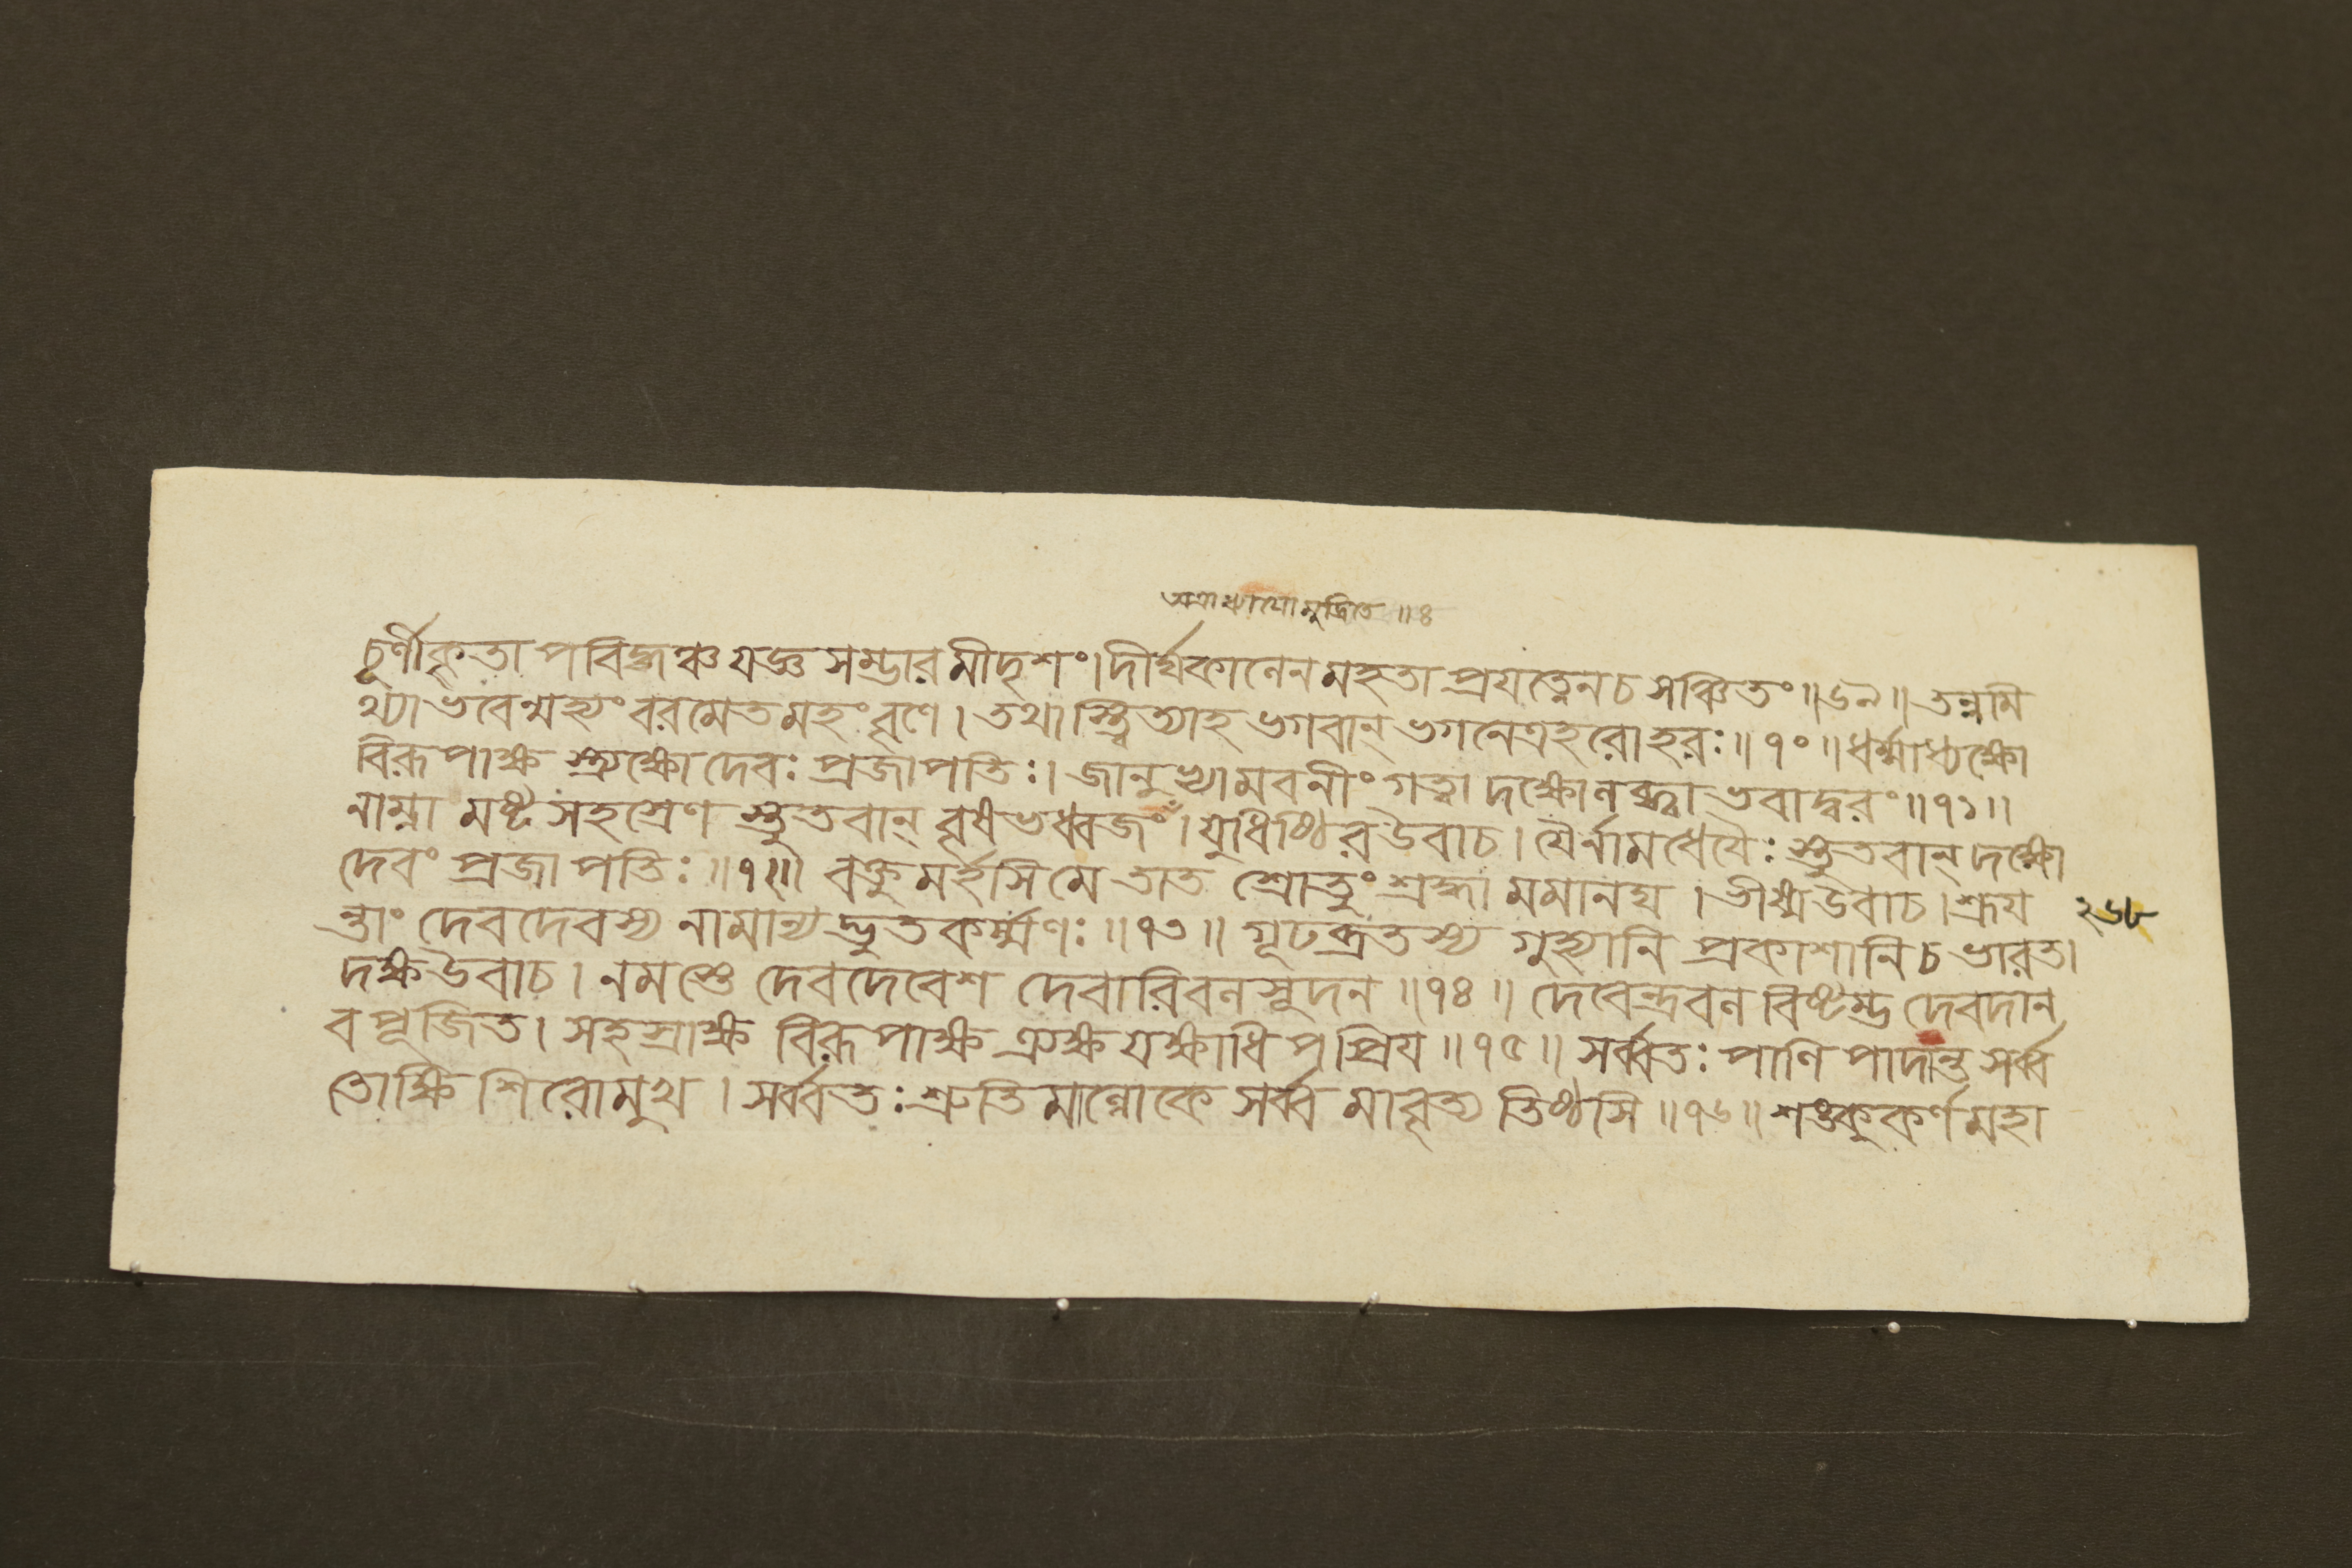 অত্রাধ্যায়োমুদ্রিতে ॥ঃ
চূর্ণীকৃতা পবিদ্ধঞ্চ যজ্ঞ সম্ভার মীদৃশং। দীর্ঘকালেন মহতা প্রযত্নেন চ সঞ্চিতং ॥৬৯॥ তন্নমি
থ্যা ভবেন্মহ্যং বরমেতমহং বৃণে। তথাস্ত্বিত্যাহ ভগবান্ ভগনেত্রহরোহরঃ ॥৭০॥ ধর্ম্মাধ্যক্ষো
বিরূপাক্ষ স্ত্র্যক্ষো দেবঃ প্রজাপতিঃ। জানুভ্যামবনীং গত্বা দক্ষোলব্ধ্বা ভবাদ্বরং ॥৭১॥
নাম্না মষ্ট সহস্রেণ স্তুতবান্ বৃষভধ্বজং। যুধিষ্ঠির উবাচ। যৈর্নামধেযৈঃ স্তুতবান্ দক্ষো
দেবং প্রজাপতিঃ ॥৭২॥ বক্তুমর্হসি মে তাত শ্রোতুং শ্রদ্ধা মমানঘ। ভীষ্ম উবাচ। শ্রূয ২৬৮
ন্তাং দেবদেবস্য নামান্যদ্ভুতকর্ম্মণঃ ॥৭৩॥ গূঢব্রতস্য গুহ্যানি প্রকাশানি চ ভারত।
দক্ষ উবাচ। নমস্তে দেবদেবেশ দেবারিবলসূদন ॥৭৪॥ দেবেন্দ্রবল বিষ্টম্ভ দেবদান
ব পূজিত। সহস্রাক্ষ বিরূপাক্ষ ত্র্যক্ষ যক্ষাধিপপ্রিয ॥৭৫॥ সর্ব্বতঃ পাণি পাদান্ত সর্ব্ব
তোক্ষি শিরোমুখ। সর্ব্বতঃ শ্রুতিমাল্লোকে সর্ব্বমাবৃত্য তিষ্ঠসি ॥৭৬॥ শঙ্কুকর্ণ মহা